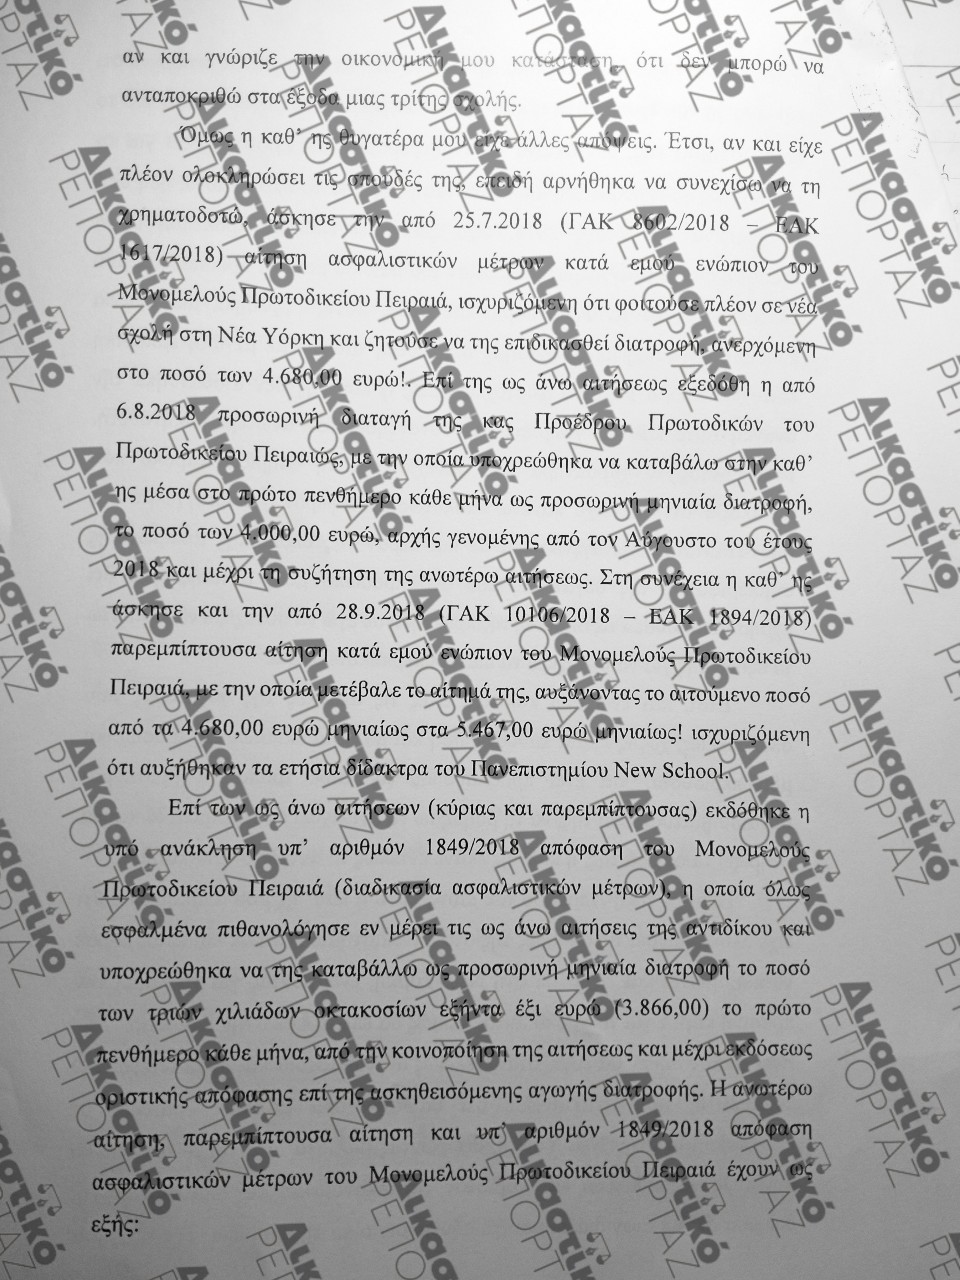 αν και γνώριζε την οικονομική μου κατάσταση, ότι δεν μπορώ να
ανταποκριθώ στα έξοδα μιας τρίτης σχολής.
Όμως η καθ’ ης θυγατέρα μου είχε άλλες απόψεις. Έτσι, αν και είχε
πλέον ολοκληρώσει τις σπουδές της, επειδή αρνήθηκα να συνεχίσω να τη
χρηματοδοτώ, άσκησε την από 25.7.2018 (ΓΑΚ 8602/2018 – ΕΑΚ
1617/2018) αίτηση ασφαλιστικών μέτρων κατά εμού ενώπιον του
Μονομελούς Πρωτοδικείου Πειραιά, ισχυριζόμενη ότι φοιτούσε πλέον σε νέα
σχολή στη Νέα Υόρκη και ζητούσε να της επιδικασθεί διατροφή, ανερχόμενη
στο ποσό των 4.680,00 ευρώ!. Επί της ως άνω αιτήσεως εξεδόθη η από
6.8.2018 προσωρινή διαταγή της κας Προέδρου Πρωτοδικών του
Πρωτοδικείου Πειραιώς, με την οποία υποχρεώθηκα να καταβάλω στην καθ’
ης μέσα στο πρώτο πενθήμερο κάθε μήνα ως προσωρινή μηνιαία διατροφή,
το ποσό των 4.000,00 ευρώ, αρχής γενομένης από τον Αύγουστο του έτους
2018 και μέχρι τη συζήτηση της ανωτέρω αιτήσεως. Στη συνέχεια η καθ’ ης
άσκησε και την από 28.9.2018 (ΓΑΚ 10106/2018 – ΕΑΚ 1894/2018)
παρεμπίπτουσα αίτηση κατά εμού ενώπιον του Μονομελούς Πρωτοδικείου
Πειραιά, με την οποία μετέβαλε το αίτημά της, αυξάνοντας το αιτούμενο ποσό
από τα 4.680,00 ευρώ μηνιαίως στα 5.467,00 ευρώ μηνιαίως! ισχυριζόμενη
ότι αυξήθηκαν τα ετήσια δίδακτρα του Πανεπιστημίου New School.
Επί των ως άνω αιτήσεων (κύριας και παρεμπίπτουσας) εκδόθηκε η
υπό ανάκληση υπ’ αριθμόν 1849/2018 απόφαση του Μονομελούς
Πρωτοδικείου Πειραιά (διαδικασία ασφαλιστικών μέτρων), η οποία όλως
εσφαλμένα πιθανολόγησε εν μέρει τις ως άνω αιτήσεις της αντιδίκου και
υποχρεώθηκα να της καταβάλλω ως προσωρινή μηνιαία διατροφή το ποσό
των τριών χιλιάδων οκτακοσίων εξήντα έξι ευρώ (3.866,00) το πρώτο
πενθήμερο κάθε μήνα, από την κοινοποίηση της αιτήσεως και μέχρι εκδόσεως
οριστικής απόφασης επί της ασκηθεισόμενης αγωγής διατροφής. Η ανωτέρω
αίτηση, παρεμπίπτουσα αίτηση και υπ’ αριθμόν 1849/2018 απόφαση
ασφαλιστικών μέτρων του Μονομελούς Πρωτοδικείου Πειραιά έχουν ως
εξής:
Δικαστικό
ΡΕΠΟΡΤΑΖ